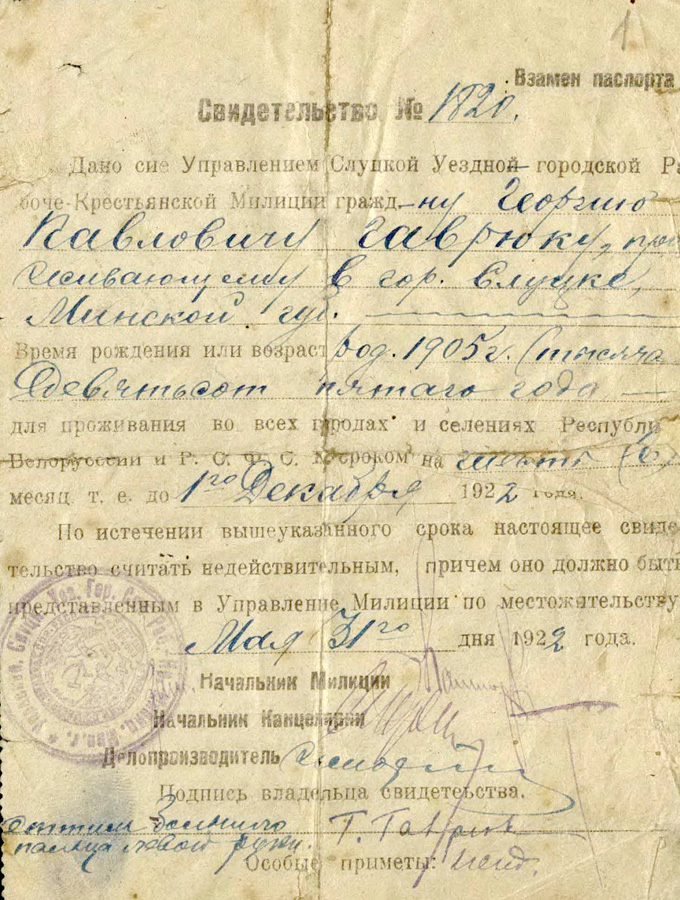 1
Взамен паспорта
Свидетельство № 1820.
Дано сие Управлением Слуцкой Уездной городской Ра
боче-Крестьянской Милиции гражд-ну Георгию
Павловичу Гаврюку, про
живающему в гор. Слуцке,
Минской губ.
Время рождения или возраст род. 1905 г. (тысяча
девятьсот пятаго года
для проживания во всех городах и селениях Республи
Белоруссии и Р. С. Ф. С. Р. сроком на шесть (6)
месяц т. е. до 1го Декабря 1922 года.
По истечении вышеуказанного срока настоящее свиде
тельство считать недействительным, причем оно должно быть
представленным в Управление Милиции по местожительству
Мая 31го дня 1922 года.
Начальник Милиции
Начальник Канцелярии
Делопроизводитель
Подпись владельца свидетельства.
оттиск большого Г. Гаврюк
пальца левой руки.
Особые приметы: